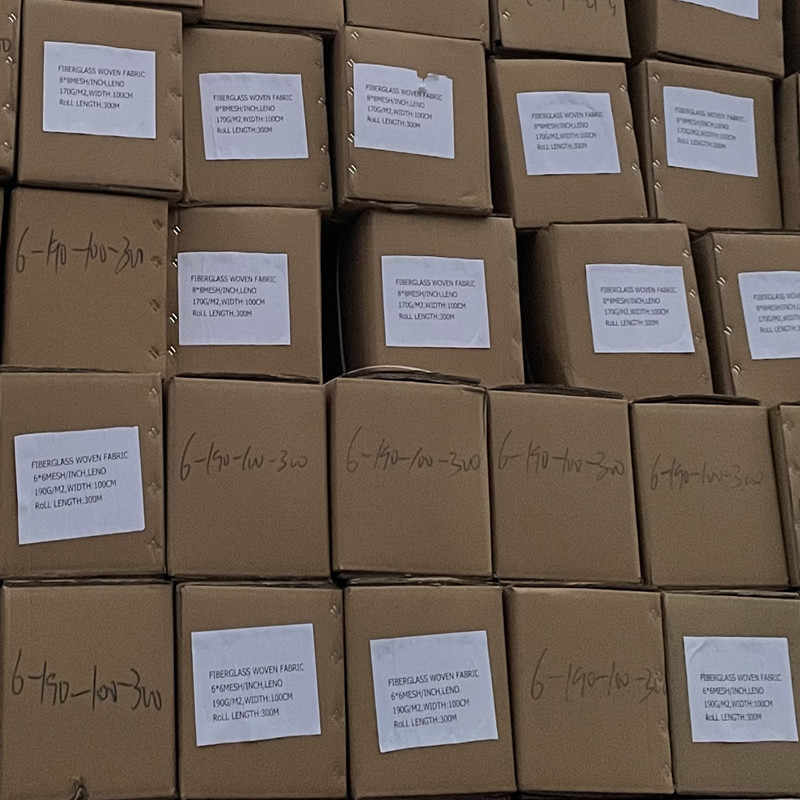 FIBERGLASS WOVEN FABRIC
8*8MESH/INCH,LENO
170G/M2,WIDTH:100CM
RoLL LENGTH:300M
FIBERGLASS WOVEN FABRIC
8*8MESH/INCH,LENO
170G/M2,WIDTH:100CM
RoLL LENGTH:300M
FIBERGLASS WOVEN FABRIC
8*8MESH/INCH,LENO
170G/M2,WIDTH:100CM
RoLL LENGTH:300M
FIBERGLASS WOVEN FABRIC
8*8MESH/INCH,LENO
170G/M2,WIDTH:100CM
RoLL LENGTH:300M
FIBERGLASS WOVEN FABRIC
8*8MESH/INCH,LENO
170G/M2,WIDTH:100CM
RoLL LENGTH:300M
6-190-100-300
FIBERGLASS WOVEN FABRIC
8*8MESH/INCH,LENO
170G/M2,WIDTH:100CM
RoLL LENGTH:300M
FIBERGLASS WOVEN FABRIC
8*8MESH/INCH,LENO
170G/M2,WIDTH:100CM
RoLL LENGTH:300M
FIBERGLASS WOVEN FABRIC
8*8MESH/INCH,LENO
170G/M2,WIDTH:100CM
RoLL LENGTH:300M
FIBERGLASS WOVEN
8*8MESH/INCH,LENO
170G/M2,WIDTH:100
RoLL LENGTH:300M
FIBERGLASS WOVEN FABRIC
6*6MESH/INCH,LENO
190G/M2,WIDTH:100CM
RoLL LENGTH:300M
6-190-100-300
6-190-100-300
6-190-100-300
6-190-100-300
6-190-100-300
FIBERGLASS WOVEN FABRIC
6*6MESH/INCH,LENO
190G/M2,WIDTH:100CM
RoLL LENGTH:300M
FIBERGLASS WOVEN FABRIC
6*6MESH/INCH,LENO
190G/M2,WIDTH:100CM
RoLL LENGTH:300M
6-190-100-300
FIBERGLASS WOVEN FABRIC
6*6MESH/INCH,LENO
190G/M2,WIDTH:100CM
RoLL LENGTH:300M